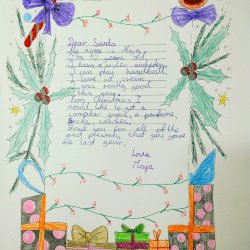 Dear Santa
My name is Maja.
I'm 10 years old.
I have a sister and dog.
I can play handball.
I love my
I was really good
this year.
For Christmas I
would like to get a
computer game, a perfume,
candies.
Thank you for all of the
presents that you gave
me last year.
Love
Maja